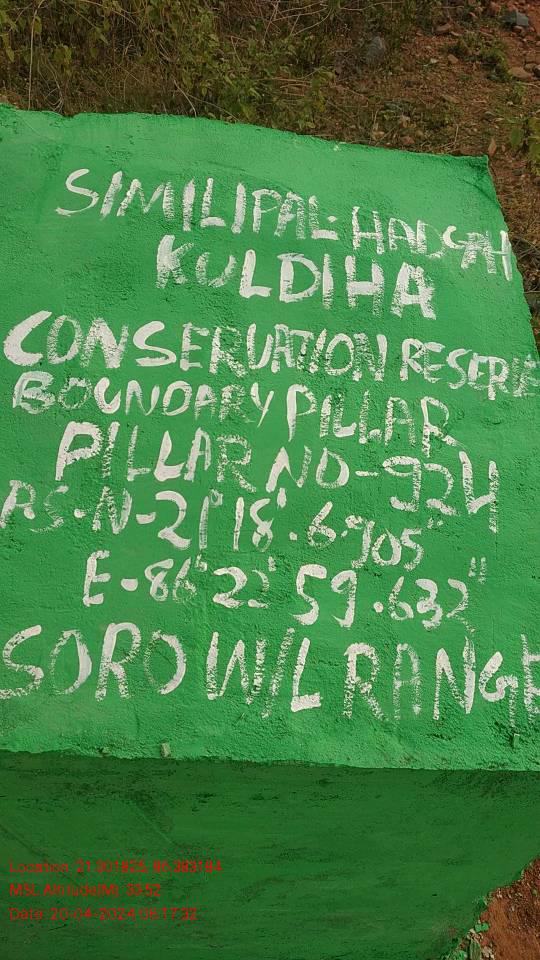 SIMILIPAL-HADGAH
KULDIHA
CONSERVATION RESERVE
BOUNDARY PILLAR
PILLAR NO-924
P.S.-N-21° 18'.6.905"
E-86° 22' 59.632"
SORO W/L RANGE
Location: 21.301825, 86.383184
MSL Altitude(M): 33.52
Date: 20-04-2024 06:17:32